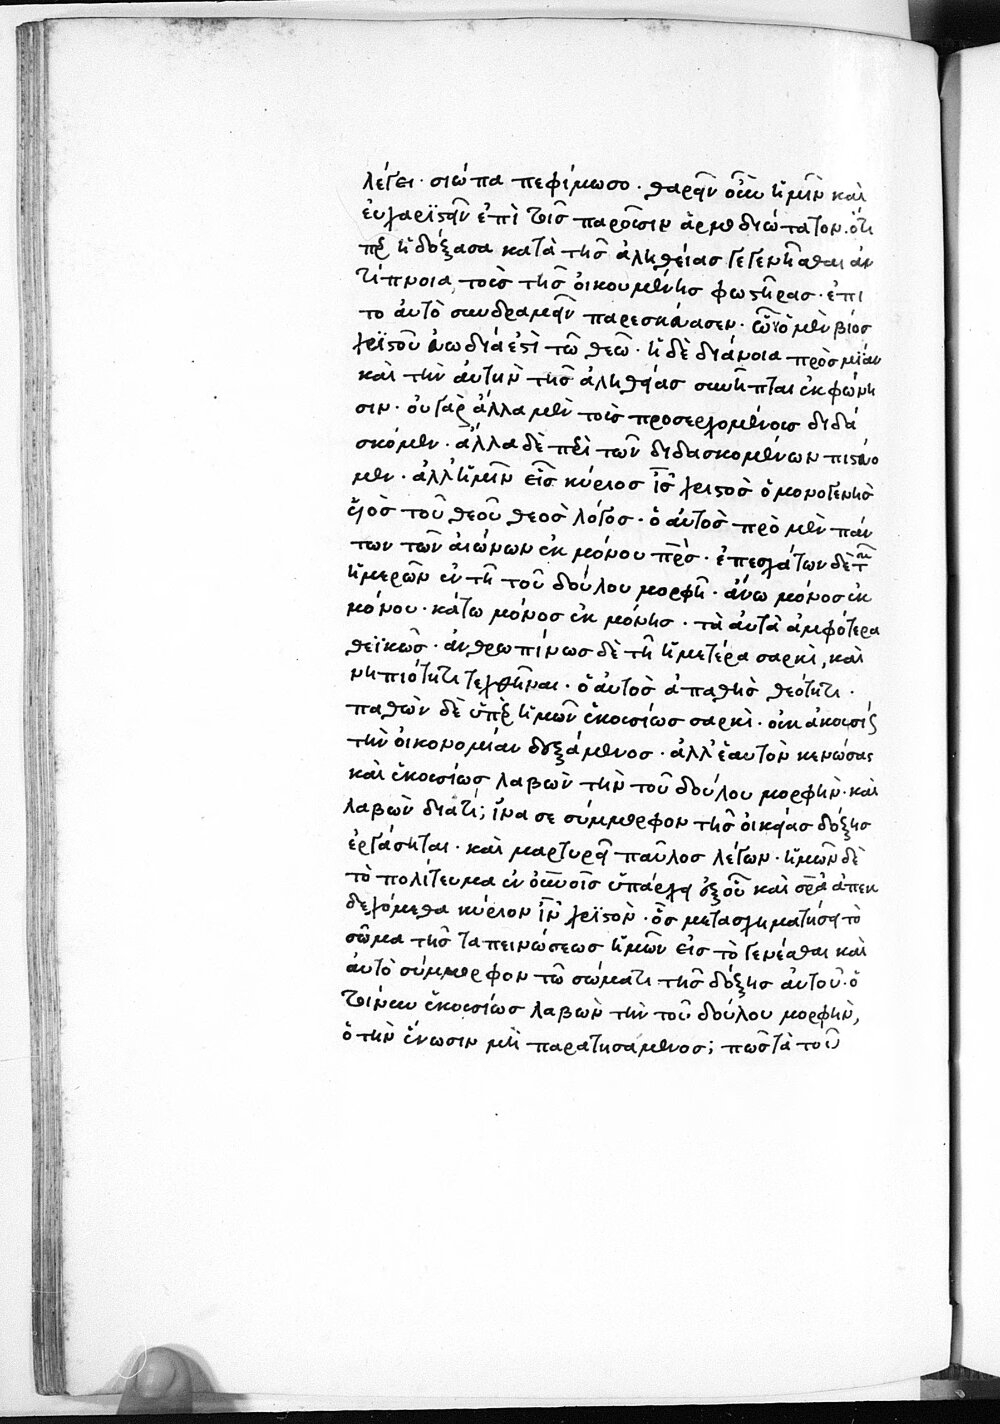 λέγει· σιώπα πεφίμωσο· θαρρεῖν οὖν ἡμῖν καὶ
εὐχαριστεῖν ἐπὶ τοῖς παροῦσιν ἁρμοδιώτατον· ὅτι
περ ἡ δόξασα κατὰ τῆς ἀληθείας γεγενῆσθαι ἀν
τίπνοια τοὺς τῆς οἰκουμένης φωστῆρας· ἐπι
το αὐτὸ συνδραμεῖν παρεσκεύασεν· ὧν ὁ μὲν βίος
χριστοῦ εὐωδία ἐστὶ τῶ θεῶ· ἡ δὲ διάνοια πρὸς μίαν
καὶ τὴν αὐτὴν τῆς ἀληθείας συνῆπται ἐκφώνη
σιν· οὐ γὰρ ἄλλα μὲν τοῖς προσερχομένοις διδά
σκομεν· ἄλλα δὲ περὶ τῶν διδασκομένων πιστεύο
μεν· ἀλλ' ἡμῖν εἷς κύριος ις χριστὸς ὁ μονογενὴς
υἱὸς τοῦ θεοῦ θεὸς λόγος· ὁ αὐτὸς πρὸ μὲν πάν
των τῶν αἰώνων ἐκ μόνου πρς· ἐπεσχάτων δὲ τῶν
ἡμερῶν ἐν τῆ τοῦ δούλου μορφῆ· ἄνω μόνος ἐκ
μόνου· κάτω μόνος ἐκ μόνης· τὰ αὐτὰ ἀμφότερα
θεϊκῶς· ἀνθρωπίνως δὲ τῆ ἡμετέρα σαρκὶ, καὶ
νηπιότητι τεχθῆναι· ὁ αὐτὸς ἀπαθὴς θεότητι·
παθὼν δὲ ὑπὲρ ἡμῶν ἑκουσίως σαρκὶ· οὐκ ἀκουσίως
τὴν οἰκονομίαν δεξάμενος· ἀλλ' ἑαυτὸν κενώσας
καὶ ἑκουσίως λαβὼν τὴν τοῦ δούλου μορφὴν· καὶ
λαβὼν διατί; ἵνα σε σύμμορφον τῆς οἰκείας δόξης
ἐργάσηται· καὶ μαρτυρεῖ παῦλος λέγων· ἡμῶν δὲ
τὸ πολίτευμα ἐν οὐνοῖς ὑπάρχει ἐξ οὗ καὶ σρα ἀπεκ
δεχόμεθα κύριον ιν χριστὸν· ὃς μετασχηματίσει τὸ
σῶμα τῆς ταπεινώσεως ἡμῶν εἰς τὸ γενέσθαι καὶ
αὐτὸ σύμμορφον τῶ σώματι τῆς δόξης αὐτοῦ· ὁ
τοίνυν ἑκουσίως λαβὼν τὴν τοῦ δούλου μορφὴν,
ὁ τὴν ἕνωσιν μὴ παρατησάμενος; πῶς τὰ τοῦ